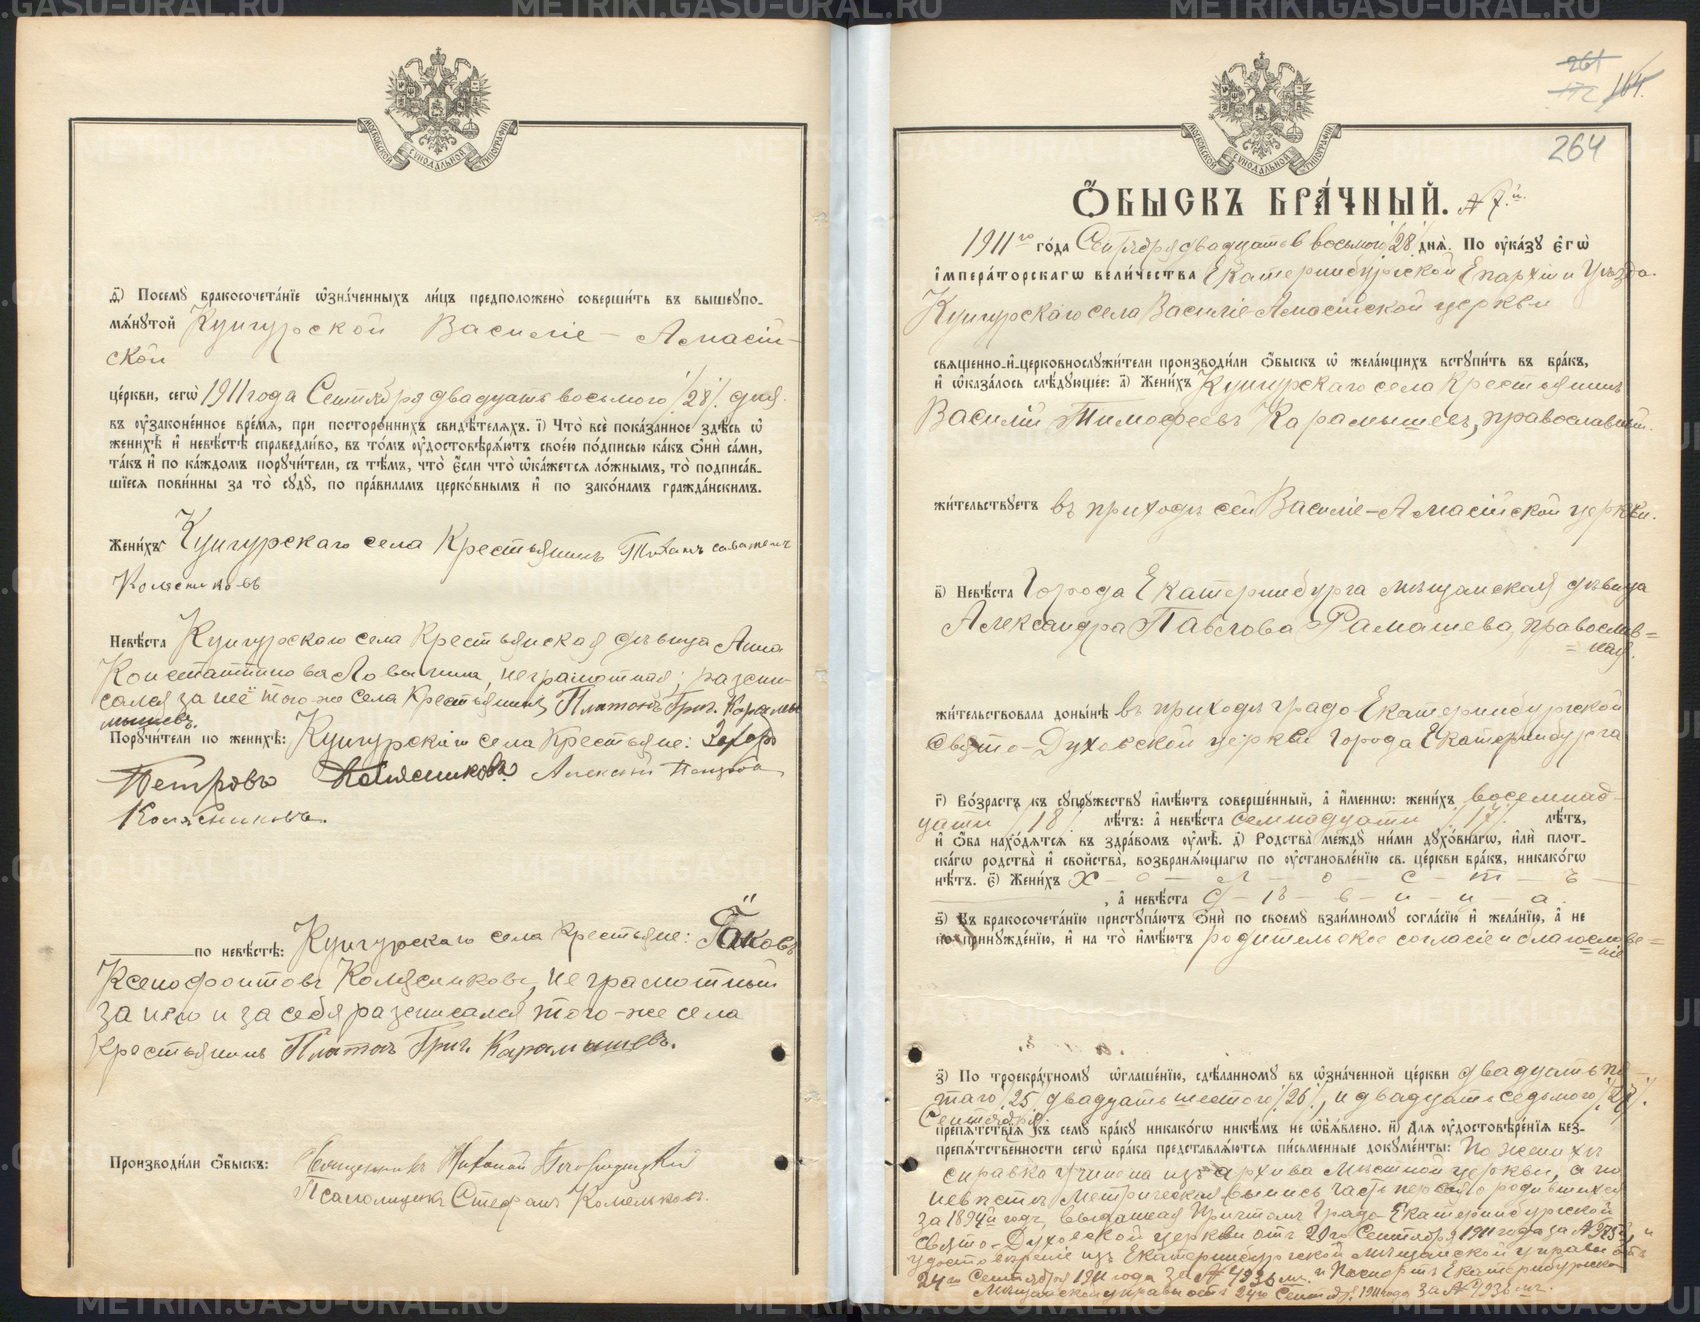 д҃) Посемꙋ бракосочета́нїе ѡ҆зна́ченныхъ ли́цъ предположено̀ соверши́ть въ вышеꙋпо-
мѧ́нꙋтой Кунгурской Василіе – Амасій-
ской
це́ркви, сегѡ̀ 1911 года Сентября двадцать восьмого /28/. дня.
въ ᲂу҆зако́ненное вре́мѧ, при посторо́ннихъ свидѣ́телѧхъ. і҃) Что̀ всѐ пока́занное здѣ́сь ѡ҆
женихѣ̀ и҆ невѣ́стѣ справедли́во, въ то́мъ ᲂу҆достовѣрѧ́ютъ свое́ю по́дписью ка́къ ѻ҆нѝ са́ми,
та́къ и҆ по ка́ждомъ порꙋчи́тели, съ тѣ́мъ, что̀ є҆́сли что̀ ѡ҆ка́жетсѧ ло́жнымъ, то̀ подписа́в-
шїесѧ пови́нны за то̀ сꙋдꙋ̀, по пра́виламъ церко́внымъ и҆ по зако́намъ гражда́нскимъ.
Жени́хъ Кунгурскаго села Крестьянинъ Тихонъ
Колясниковъ
Невѣ́ста Кунгурскаго села Крестьянская дѣвица Анна
Константинова, неграмотная; расписа-
сался за неё того-же села Крестьянинъ Платонъ Григ. Карамы
мышевъ.
Порꙋчи́тели по женихѣ̀: Кунгурскаго села Крестьяне: Захаръ
Петровъ Колясниковъ. Алексѣй Петровъ
Колясниковъ.
по невѣ́стѣ: Кунгурскаго села Крестьяне: Яковъ
Ксенофонтовъ Колясниковъ, неграмотный
за него и за себя расписался того-же села
Крестьянинъ Платонъ Григ. Карамышевъ.
Производи́ли ѻ҆́быскъ: Священникъ Николай
Псаломщикъ Стефанъ Комельковъ.
261
172 164.
264
Ѻ҆́БЫСКЪ БРА́ЧНЫЙ. № 7.й
1911го го́да Сентября двадцать восьмого /28/ днѧ̀. По ᲂу҆ка́зꙋ є҆гѡ̀
і҆мпера́торскагѡ вели́чества Екатеринбургской Епархіи и Уѣзда
Кунгурскаго села Василіе-Амасійской церкви
свѧще́нно-и҆-церковнослꙋжи́тели производи́ли ѻ҆́быскъ ѡ҆ жела́ющихъ встꙋпи́ть въ бра́къ,
и҆ ѡ҆каза́лось слѣ́дꙋющее: а҃) Жени́хъ Кунгурскаго села Крестьянинъ
Василій Тимофеевъ Карамышевъ, православный.
жи́тельствꙋетъ въ приходѣ сей Василіе-Амасійской церкви.
в҃) Невѣ́ста Города Екатеринбурга мѣщанская дѣвица
Александра Павлова Рамашева, православ=
=ная.
жи́тельствовала доны́нѣ въ приходѣ градо-Екатеринбургской
Свято-Духовской церкви города Екатеринбурга
г҃) Во́зрастъ къ сꙋпрꙋ́жествꙋ и҆мѣ́ютъ соверше́нный, а҆ и҆́меннѡ: жени́хъ восемнад-
цати /18/. лѣ́тъ: а҆ невѣ́ста семнадцати /17/. лѣ́тъ,
и҆ ѻ҆́ба нахо́дѧтсѧ въ здра́вомъ ᲂу҆мѣ̀. д҃) Родства̀ ме́ждꙋ ни́ми дꙋхо́внагѡ, и҆лѝ плот-
ска́гѡ родства̀ и҆ сво́йства, возбранѧ́ющагѡ по ᲂу҆становле́нїю св. це́ркви бра́къ, никако́гѡ
нѣ́тъ. є҃) Жени́хъ х – о – л – о – с – т – ъ –
, а҆ невѣ́ста д – ѣ – в – и – ц – а
ѕ҃) Къ бракосочета́нїю пристꙋпа́ютъ ѻ҆нѝ по своемꙋ̀ взаи́мномꙋ согла́сїю и҆ жела́нїю, а҆ не
по принꙋжде́нїю, и҆ на то̀ и҆мѣ́ютъ родительское согласіе и благослове=
=ніе
з҃) По троекра́тномꙋ ѡ҆глаше́нїю, сдѣ́ланномꙋ въ ѡ҆зна́ченной це́ркви двадцать пя-
таго /25/ двадцать шестого /26/, и двадцать седьмого /27/.
Сентября
препѧ́тствїѧ къ семꙋ̀ бра́кꙋ никако́гѡ никѣ́мъ не ѡ҆б̾ѧ́влено. и҃) Длѧ ᲂу҆достовѣре́нїѧ без-
препѧ́тственности сегѡ̀ бра́ка представлѧ́ютсѧ пи́сьменные докꙋме́нты: По женихѣ
справка учинена изъ архива мѣстной церкви, а по
невѣстѣ метрическая выпись часть первая о родившихся
за 1894й годъ, выданная причтомъ градо-Екатеринбургской
Свято-Духовской церкви отъ 21го Сентября 1911 года за № 375, и
удостовѣреніе изъ Екатеринбургской мѣщанской управы отъ
24го Сентября 1911 года за № 4936 и Паспортъ Екатеринбургской
Мѣщанской управы отъ 24го Сентяб. 1911 года за № 4936